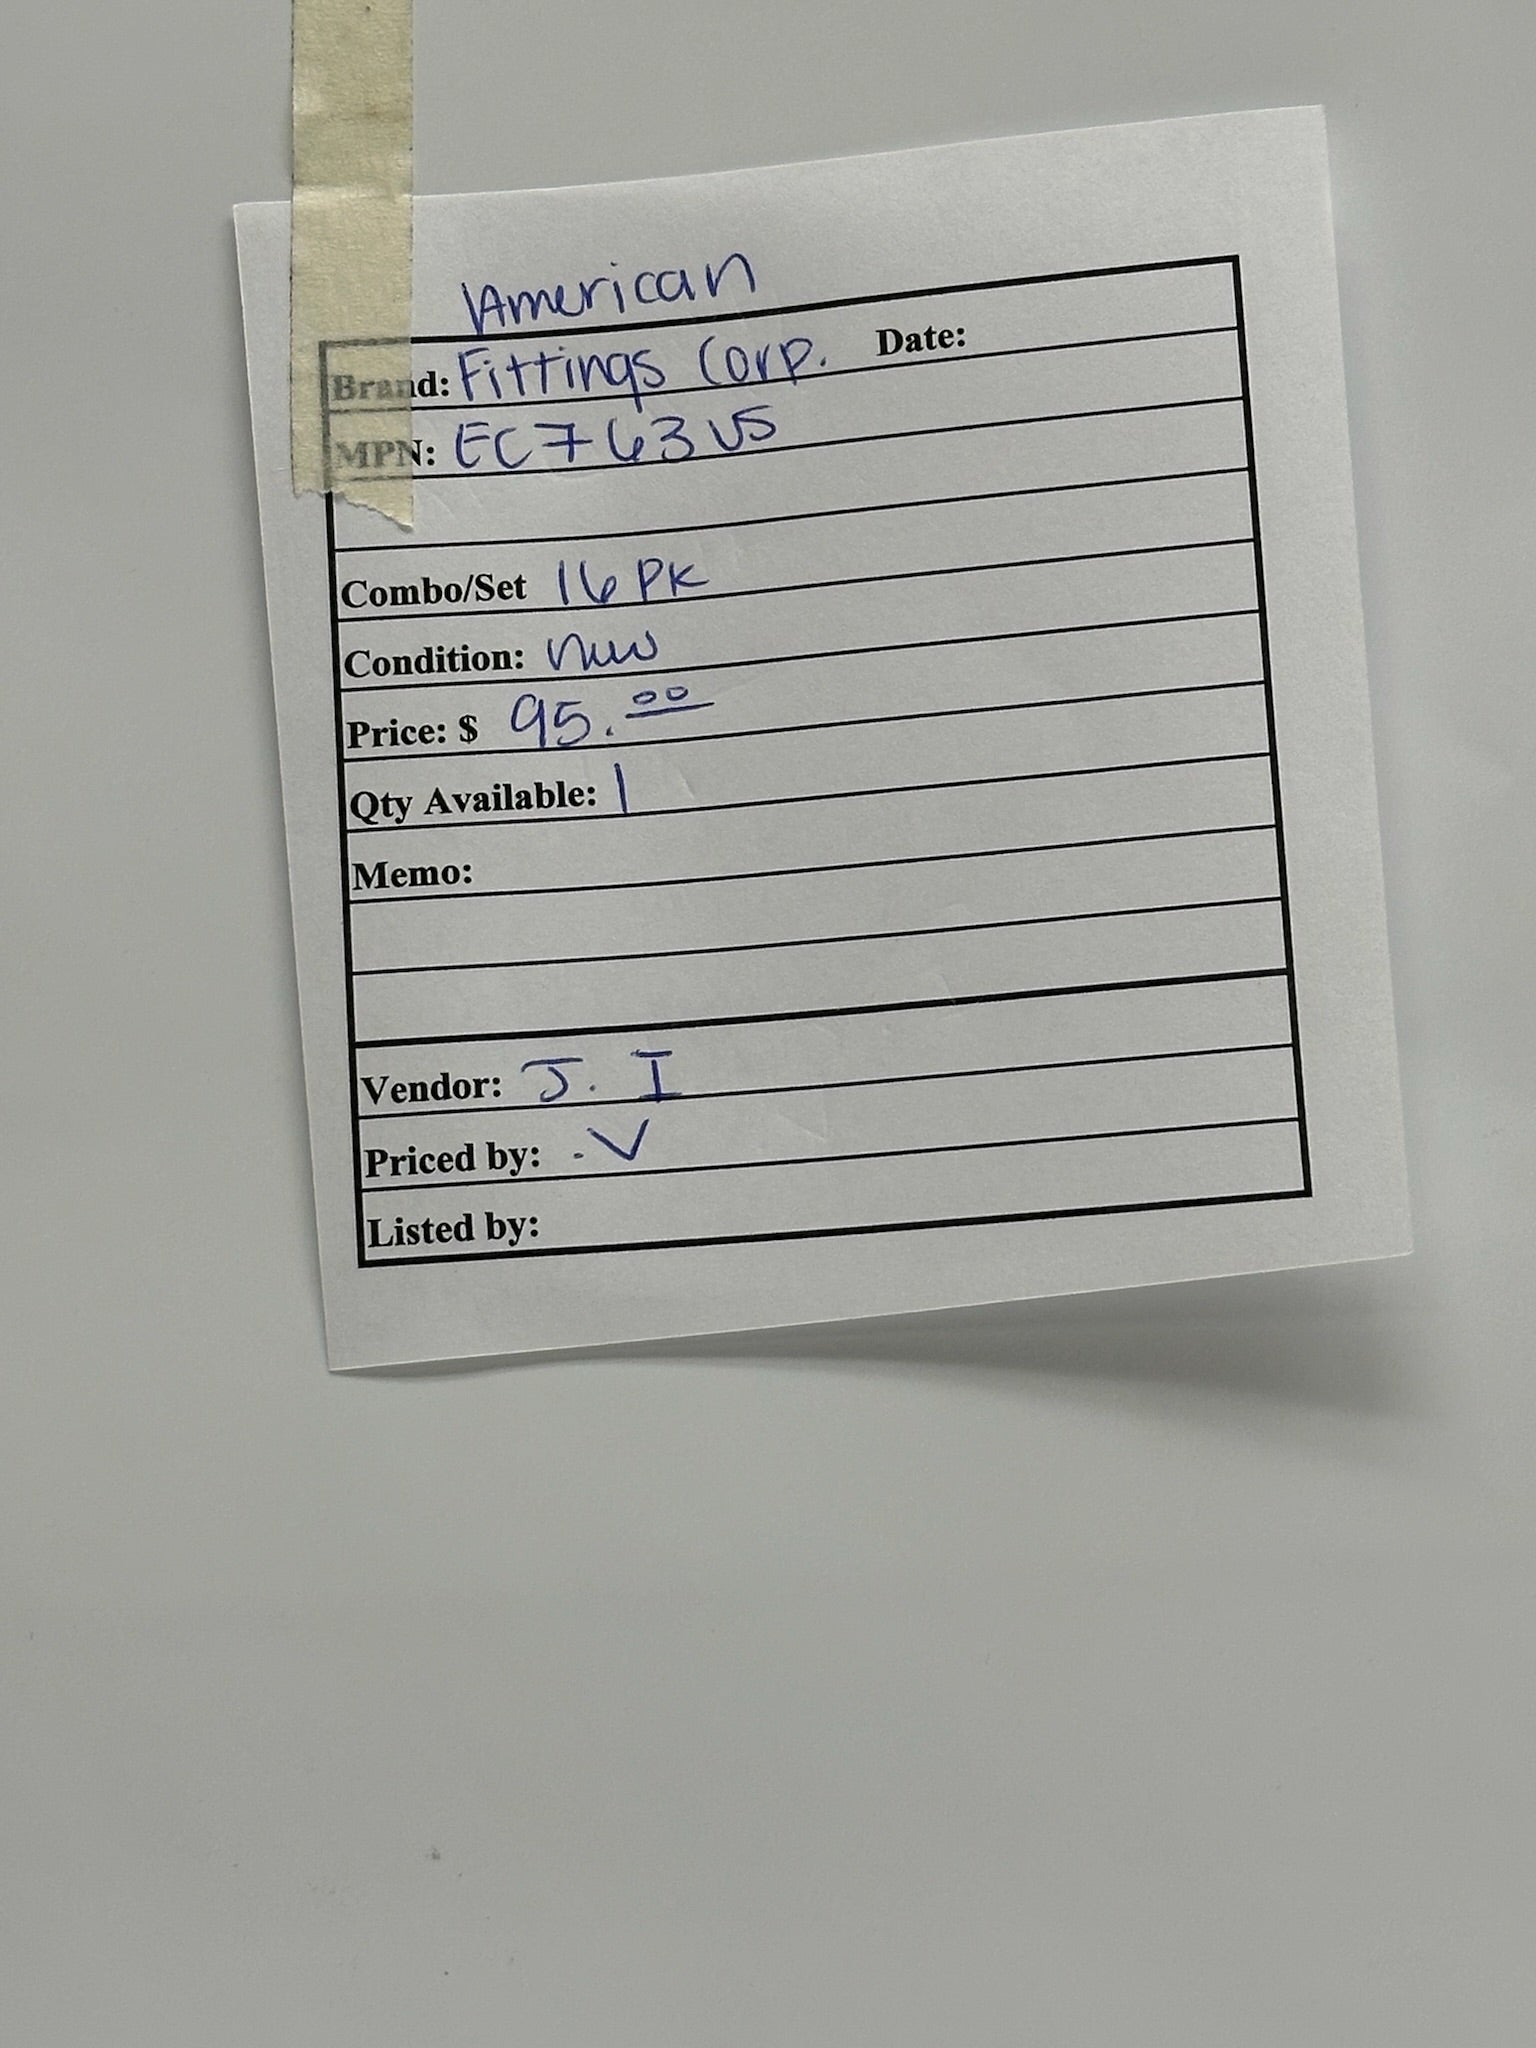 American
Brand: Fittings Corp. Date:
MPN: EC763US
Combo/Set 16 PK
Condition: new
Price: $ 95.00
Qty Available: 1
Memo:
Vendor: J. I
Priced by: .V
Listed by: